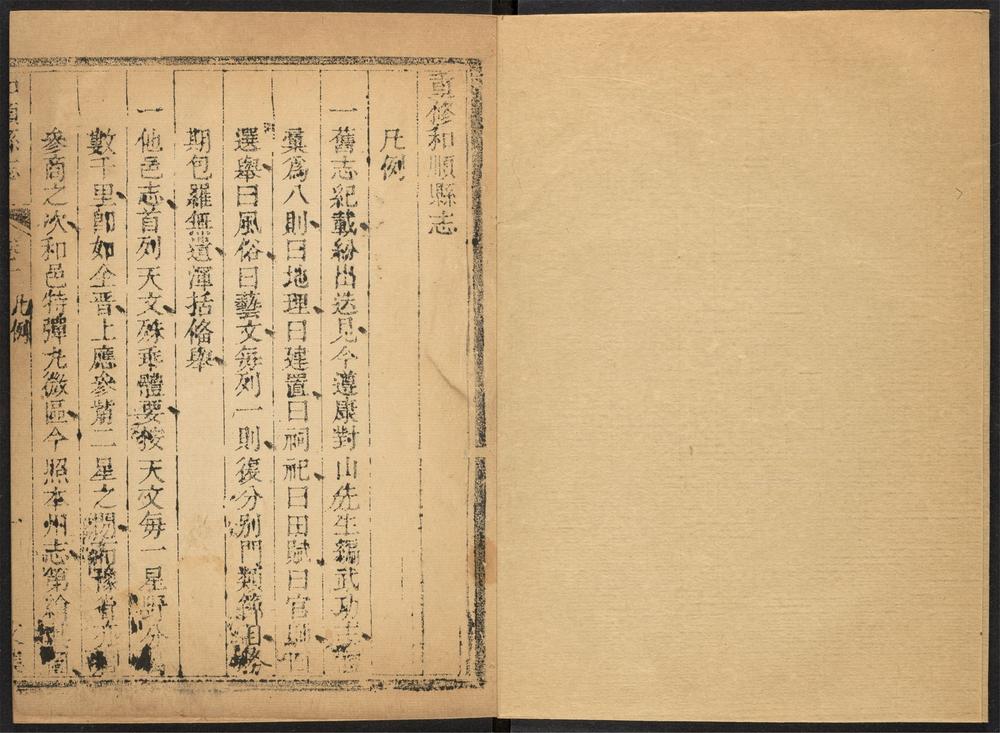 重修和順縣志
凡例
一舊志紀載紛出迭見今遵康對山先生編武功志
彙爲八則曰地理曰建置曰祠祀曰田賦曰官師曰
選舉曰風俗曰藝文每列一則復分别門類節目務
期包羅無遺渾括俻舉
一他邑志首列天文殊乖體要按天文每一星野分
數千里卽如全晋上應參觜二星之間而豫
參商之次和邑特彈丸微區今照本州志第繪
和順縣志
卷一
凡例
一